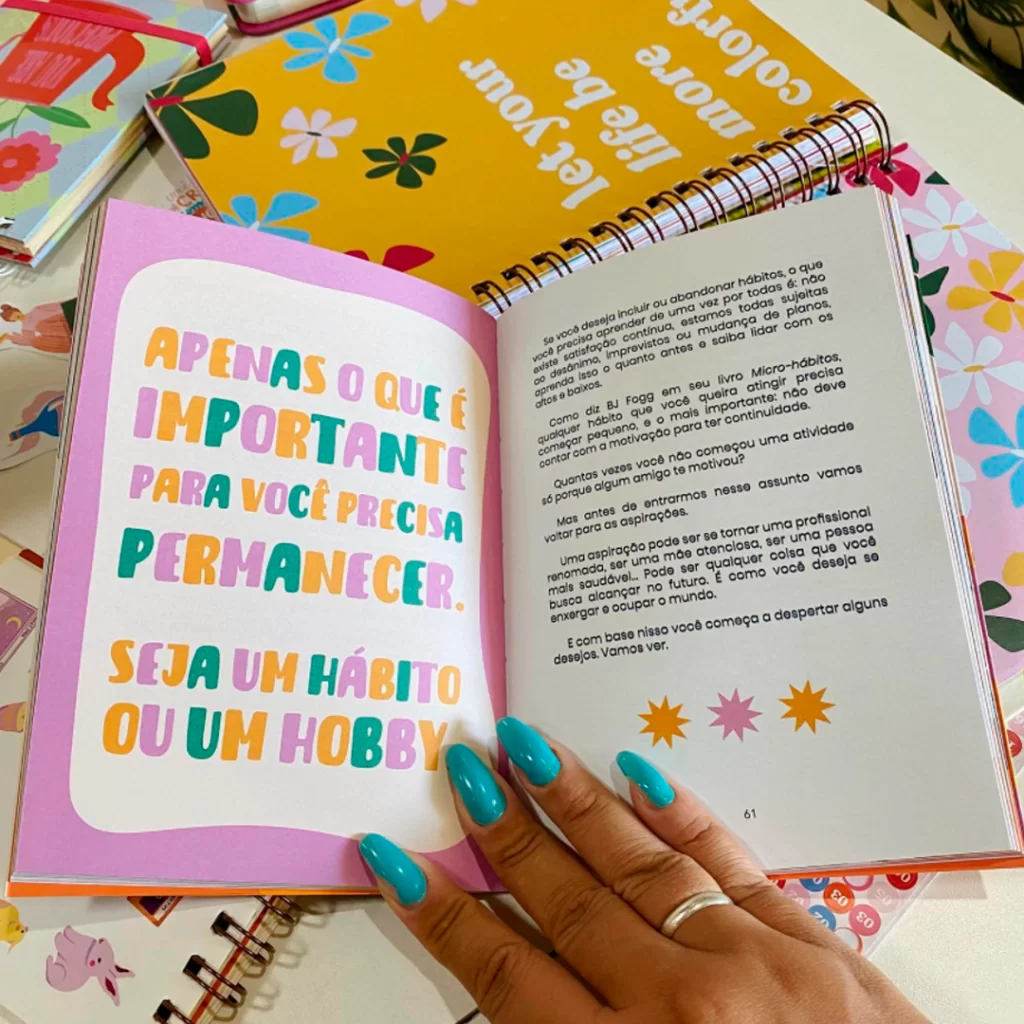 let your
life be
more
APENAS O QUE É
IMPORTANTE
PARA VOCÊ PRECISA
PERMANECER.
SEJA UM HÁBITO
OU UM HOBBY
Se você deseja incluir ou abandonar hábitos, o que
você precisa aprender de uma vez por todas é: não
existe satisfação contínua, estamos todas sujeitas
ao desânimo, imprevistos ou mudança de planos,
aprenda isso o quanto antes e saiba lidar com os
altos e baixos.
Como diz BJ Fogg em seu livro Micro-hábitos,
qualquer hábito que você queira atingir precisa
começar pequeno, e o mais importante: não deve
contar com a motivação para ter continuidade.
Quantas vezes você não começou uma atividade
só porque algum amigo te motivou?
Mas antes de entrarmos nesse assunto vamos
voltar para as aspirações.
Uma aspiração pode ser se tornar uma profissional
renomada, ser uma mãe atenciosa, ser uma pessoa
mais saudável... Pode ser qualquer coisa que você
busca alcançar no futuro. É como você deseja se
enxergar e ocupar o mundo.
E com base nisso você começa a despertar alguns
desejos. Vamos ver.
61
03
02
03
03